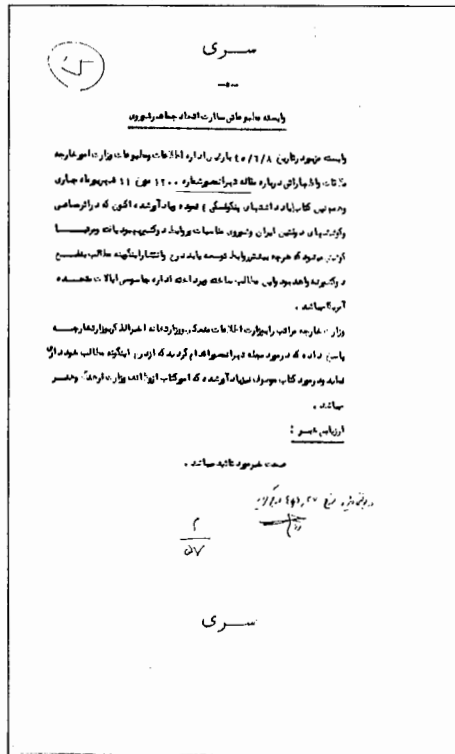 سری
وابسته مطبوعاتی سفارت اتحاد جماهیر شوروی
وابسته مزبور در تاریخ ۴۵/۶/۸ با رئیس اداره اطلاعات و مطبوعات وزارت امور خارجه
ملاقات و اظهاراتی درباره مقاله تهرانمصور شماره ۱۲۰۰ مورخ ۱۱ شهریورماه جاری
و همچنین کتاب (یادداشتهای پنکوفسکی) نموده و یادآور شده اکنون که در اثر مساعی
و کوششهای دولتین ایران و شوروی مناسبات و روابط دو کشور بهبود یافته و مرتبا
کوشش میشود که هرچه بیشتر روابط توسعه یابد درج و انتشار اینگونه مطالب بنفع
دو کشور نخواهد بود و این مطالب ساخته و پرداخته اداره جاسوسی ایالات متحده
آمریکا میباشد .
وزارت خارجه مراتب را بوزارت اطلاعات منعکس و وزارتخانه اخیرالذکر بوزارتخارجه
پاسخ داده که در مورد مجله تهرانمصور اقدام گردید که از درج اینگونه مطالب خودداری
نماید و در مورد کتاب موصوف نیز یادآور شده که امور کتاب از وظائف وزارت فرهنگ و هنر
میباشد .
ارزیابی خبر :
صحت خبر مورد تائید میباشد .
م
۵۷
سری